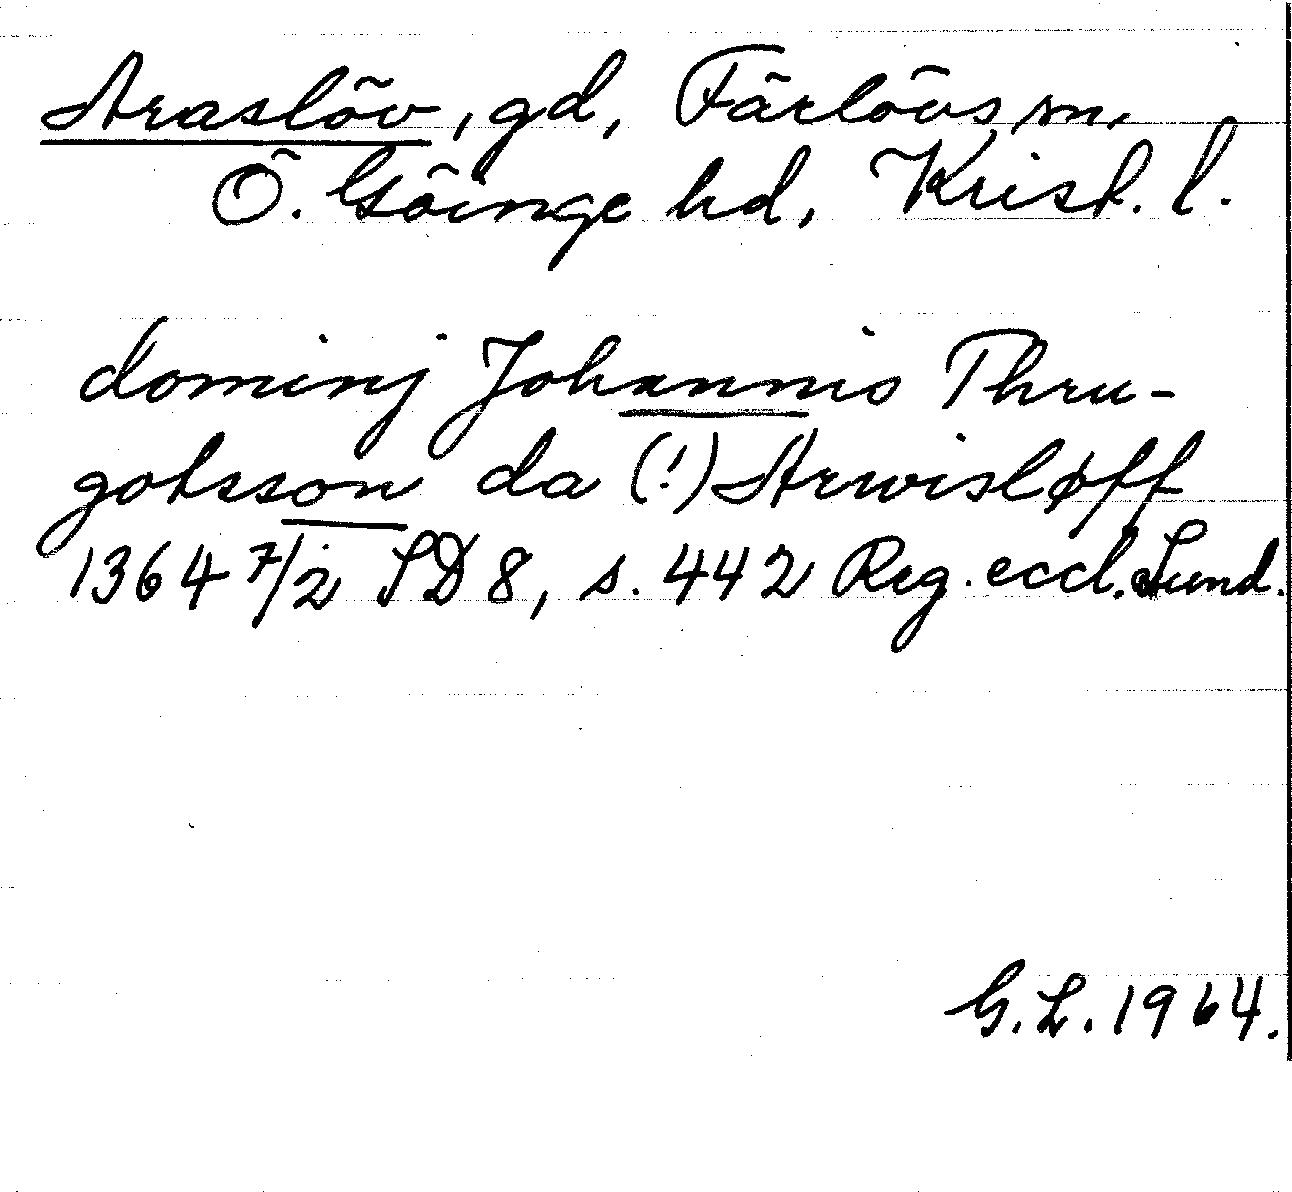 Araslöv, gd, Färlövs sn,
Ö. Göinge hd, Krist. l.
dominj Johannis Thru-
gotsson da (!) Arwisløff
1364 7/2 SD 8, s. 442 Reg. eccl. Lund.
G. L. 1964.